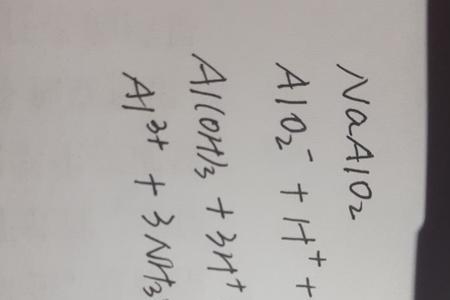 NaAlO₂
AlO₂⁻ + H⁺ +
Al(OH)₃ + 3H⁺
Al³⁺ + 3NH₃